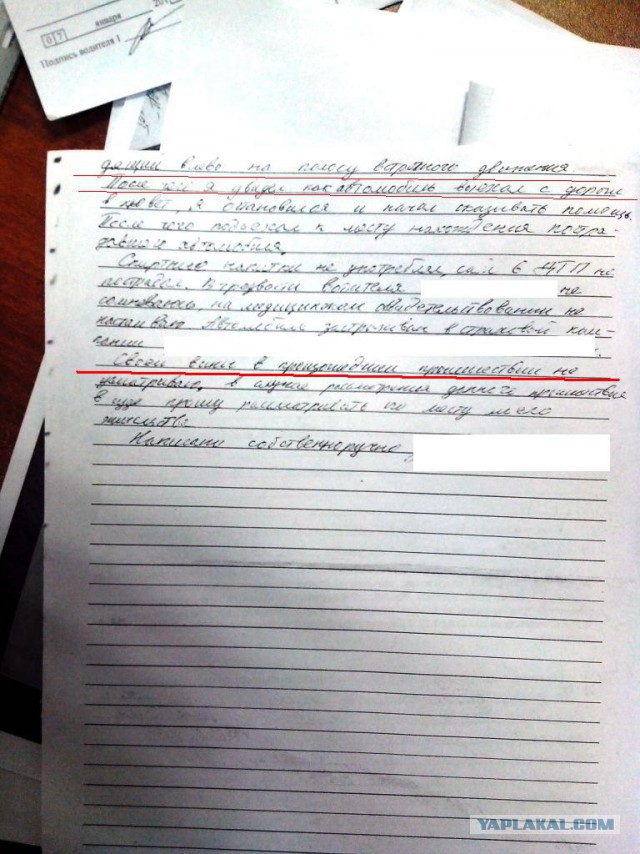 07 января 201
Подпись водителя 1
дящий влево на полосу встречного движения
После чего я увидел как автомобиль выехал с дороги
в кювет, я остановился и начал оказывать помощь.
После чего подъехал к месту нахождения постра-
давшего автомобиля.
Спиртного напитки не употреблял, сам в ДТП не
пострадал. В трезвости водителя не
сомневаюсь, на медицинском свидетельствовании не
настаиваю. Автомобиль застрахован в страховой ком-
пании
Своей вины в произошедшем происшествии не
усматриваю, в случае рассмотрения данного происшествия
в суде прошу рассматривать по месту моего
жительства.
Написано собственноручно
YAPLAKAL.COM